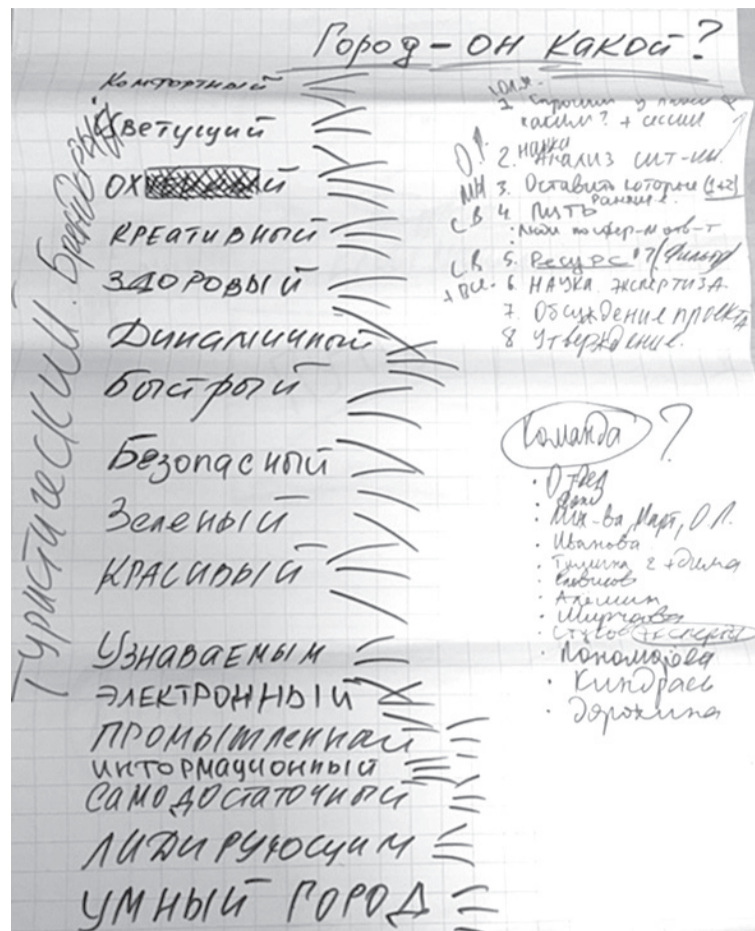 Город – он какой?
Комфортный
Цветущий
ОХ й
КРЕАТИВНЫЙ
ЗДОРОВЫЙ
Динамичный
Быстрый
Безопасный
Зеленый
КРАСИВЫЙ
Узнаваемым
ЭЛЕКТРОННЫЙ
ПРОМЫШЛЕННЫЙ
ИНТОРМАЦИОННЫЙ
САМОДОСТАТОЧНЫЙ
ЛИДИРУЮЩИМ
УМНЫЙ ГОРОД
Туристический.
каким? + сессии
О.Л. 2. НАУКА Анализ сит-ии.
МН 3. Оставить которые (1+2)
СВ 4. ПЯТЬ
СВ 5. Ресурс ? (Фильтр)
+ все. 6 НАУКА. ЭКСПЕРТИЗА.
7. Обсуждение проекта
8 Утверждение.
Команда ?
Март, О.Л.
· Иванова
2 + Дима
· Алешин
Эксперт
· Пономарева
· Киндраев
· Дорохина